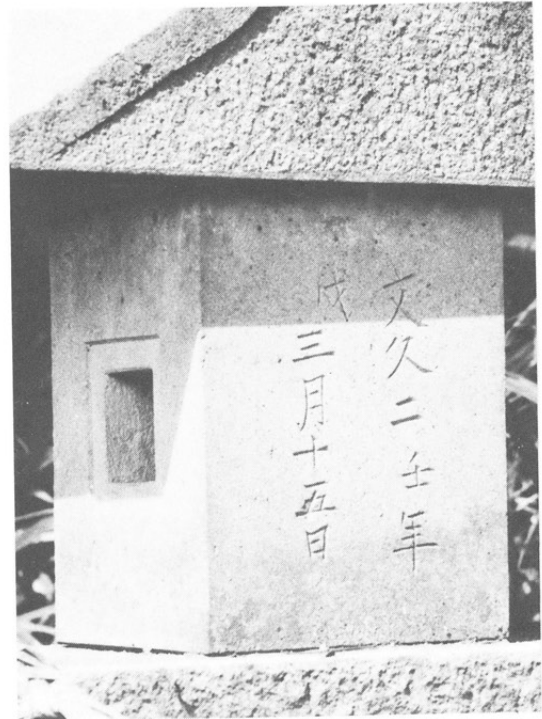 文久二壬年
戌三月十五日